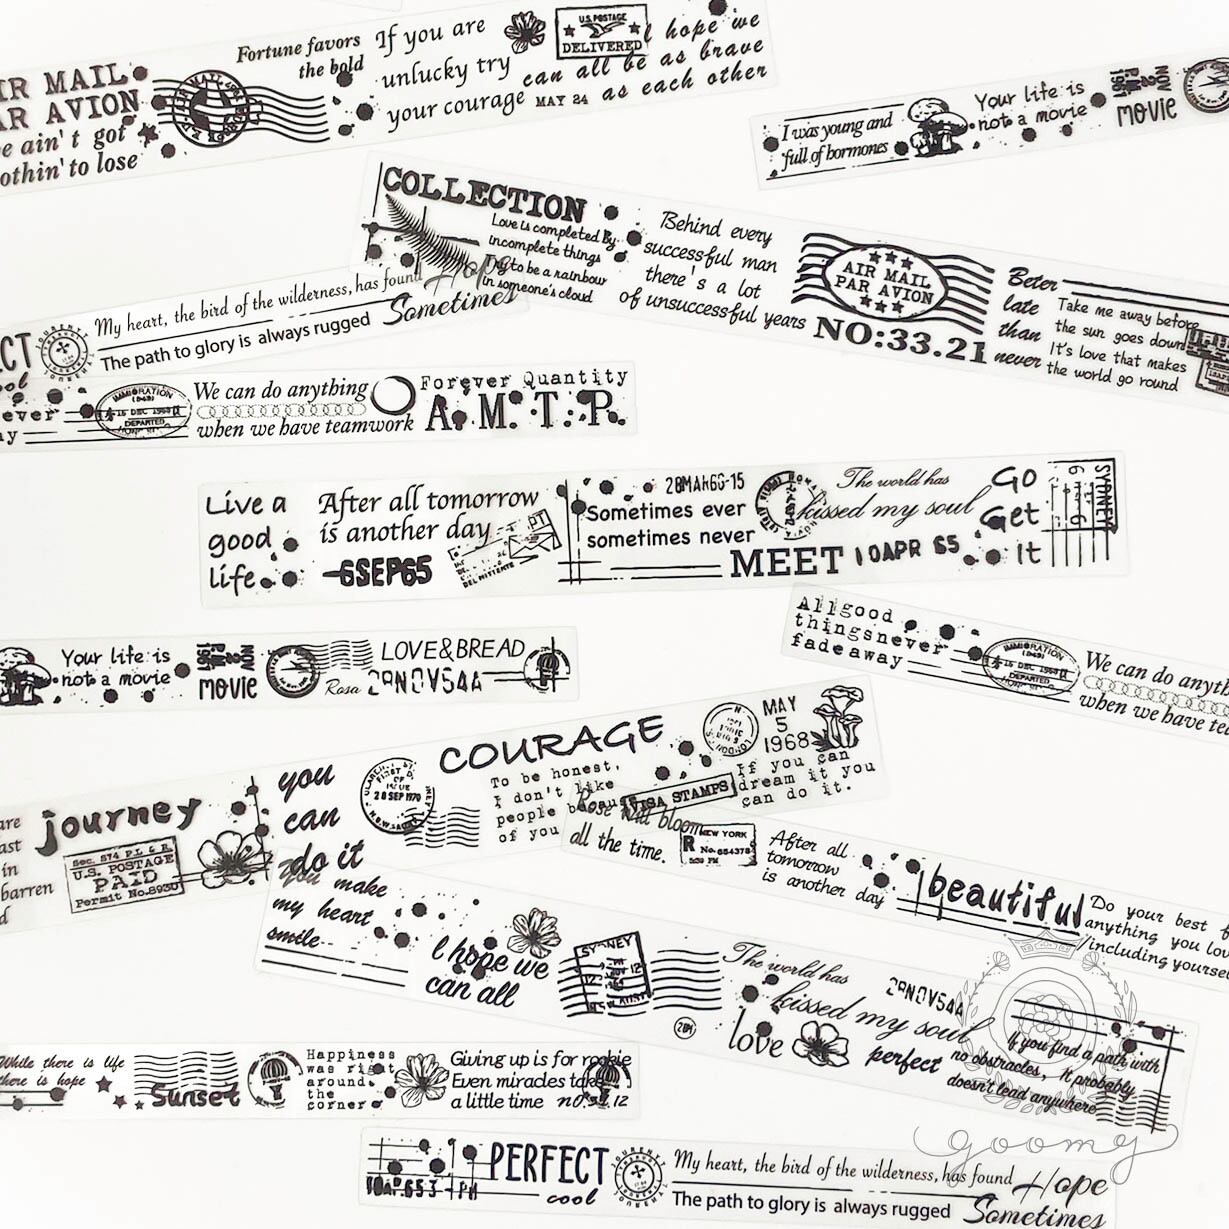 AIR MAIL
PAR AVION
ain't got
nothin' to lose
Fortune favors
the bold
If you are
unlucky try
your courage
MAY 24
U.S. POSTAGE
DELIVERED
I hope we
can all be as brave
as each other
I was young and
full of hormones
Your life is
not a movie
NOV
2
P.M
1967
movie
COLLECTION
Love is completed By
incomplete things
Try to be a rainbow
in someone's cloud
Behind every
successful man
there's a lot
of unsuccessful years
AIR MAIL
PAR AVION
NO:33.21
Beter
late
than
never
Take me away before
the sun goes down
It's love that makes
the world go round
My heart, the bird of the wilderness, has found
Hope
The path to glory is always rugged
Sometimes
IMMIGRATION
(049)
15 DEC 1968
DEPARTED
We can do anything
when we have teamwork
Forever Quantity
A.M.T.P.
Live a
good
life
After all tomorrow
is another day
-6SEP65
PT
DEL MITTENTE
28MAR66-15
Sometimes ever
sometimes never
MEET
10APR 65
The world has
kissed my soul
Go
Get
It
SYDNEY
Your life is
not a movie
NOV
2
P.M
1967
movie
Rosa
LOVE&BREAD
29NOV54A
All good
things never
fade away
IMMIGRATION
(049)
15 DEC 1968
DEPARTED
We can do
when we have
journey
are
in
barren
Sec. 574 P.L & R.
U.S. POSTAGE
PAID
Permit No.8930
you
can
do it
FIRST D
OF
ISSUE
28 SEP 1970
COURAGE
To be honest,
I don't like
people
of you
LONDON
MAY
5
1968
If you can
dream it you
can do it.
VISA STAMPS
Rose will bloom
all the time.
NEW YORK
R
No.654378
After all
tomorrow
is another day
beautiful
Do your best
anything you
including
You make
my heart
smile
I hope we
can all
SYDNEY
The world has
kissed my soul
204
love
29NOV54A
perfect
If you find a path with
no obstracles, It probably
doesn't lead anywhere
While there is life
there is hope
Sunset
Happiness
was right
around
the
corner
Giving up is for rookie
Even miracles take
a little time
no.
12
PERFECT
cool
My heart, the bird of the wilderness, has found
Hope
The path to glory is always rugged
Sometimes
goomy